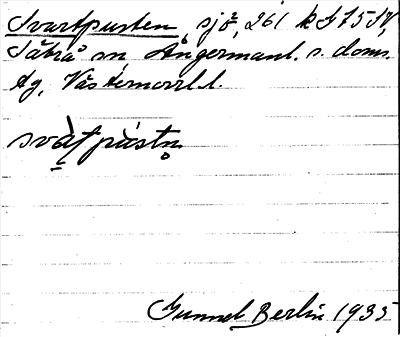 Svartpusten, sjö, 261 k I 75 IV,
Säbrå sn, Ångermanl. s. doms.
Ag, Västernorrl. l.
svàṭpùstn̥
Gunnel Berlin 1935